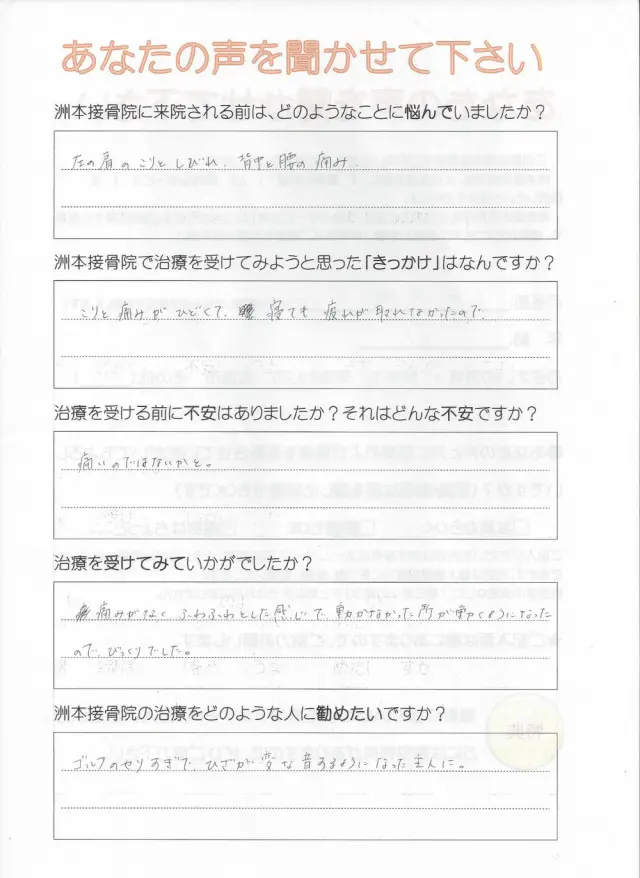 あなたの声を聞かせて下さい
洲本接骨院に来院される前は、どのようなことに悩んでいましたか？
左の肩のこりとしびれ、背中と腰の痛み.
洲本接骨院で治療を受けてみようと思った「きっかけ」はなんですか？
こりと痛みがひどくて、寝ても疲れが取れなかったので、
治療を受ける前に不安はありましたか？それはどんな不安ですか？
痛いのではないかと。
治療を受けてみていかがでしたか？
痛みがなくふわふわとした感じで動かなかった所が動くようになった
ので、びっくりでした。
洲本接骨院の治療をどのような人に勧めたいですか？
ゴルフのやりすぎで、ひざが変な音するようになった主人に。
特典